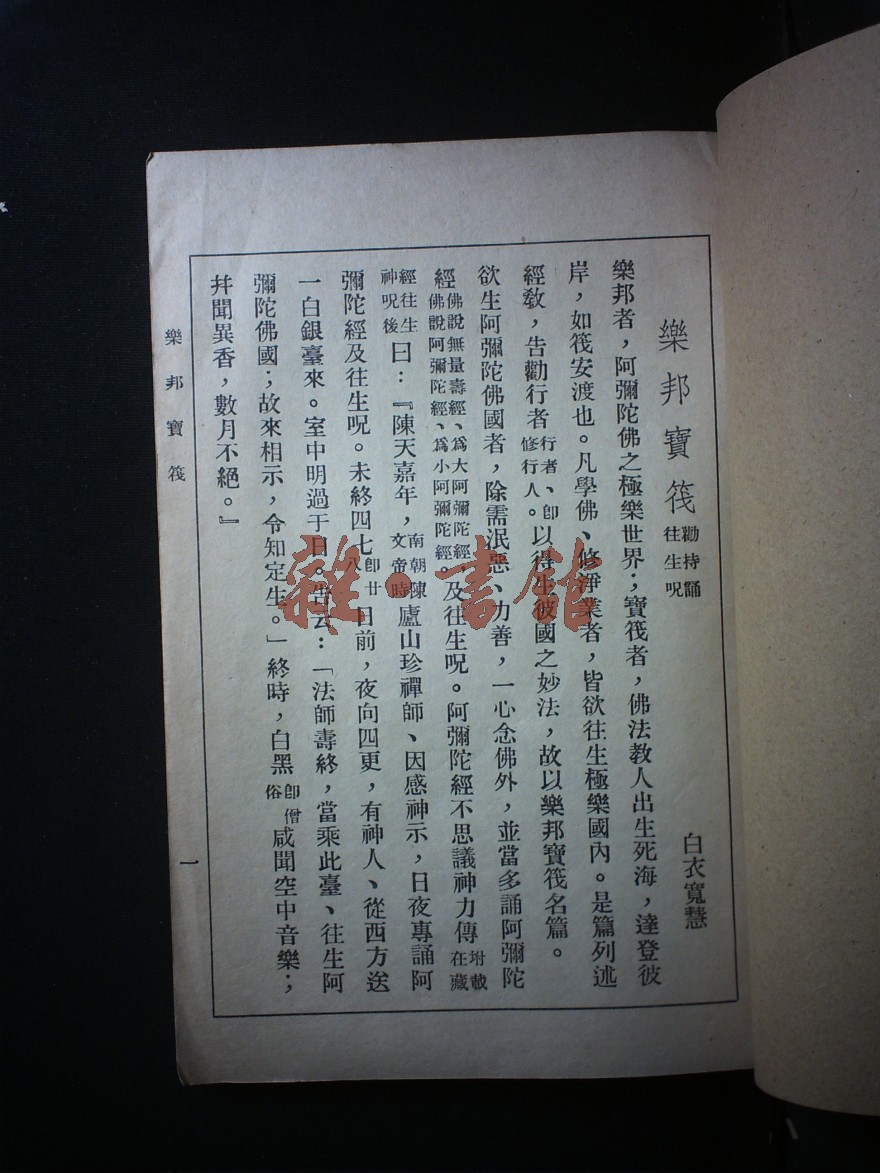 樂邦寶筏 勸持誦往生呪
白衣寬慧
樂邦者，阿彌陀佛之極樂世界；寶筏者，佛法教人出生死海，達登彼
岸，如筏安渡也。凡學佛、修淨業者，皆欲往生極樂國內。是篇列述
經教，告勸行者行者、卽修行人。以得生彼國之妙法，故以樂邦寶筏名篇。
欲生阿彌陀佛國者，除需泯惡、力善，一心念佛外，並當多誦阿彌陀
經佛說無量壽經、爲大阿彌陀經佛說阿彌陀經、爲小阿彌陀經。及往生呪。阿彌陀經不思議神力傳坿載在藏
經往生神呪後曰：『陳天嘉年，南朝陳文帝時廬山珍禪師、因感神示，日夜專誦阿
彌陀經及往生呪。未終四七卽廿八日前，夜向四更，有神人、從西方送
一白銀臺來。室中明過于日。告云：「法師壽終，當乘此臺、往生阿
彌陀佛國；故來相示，令知定生。」終時，白黑卽僧俗咸聞空中音樂；
幷聞異香，數月不絕。』
樂邦寶筏
一
雜·書館